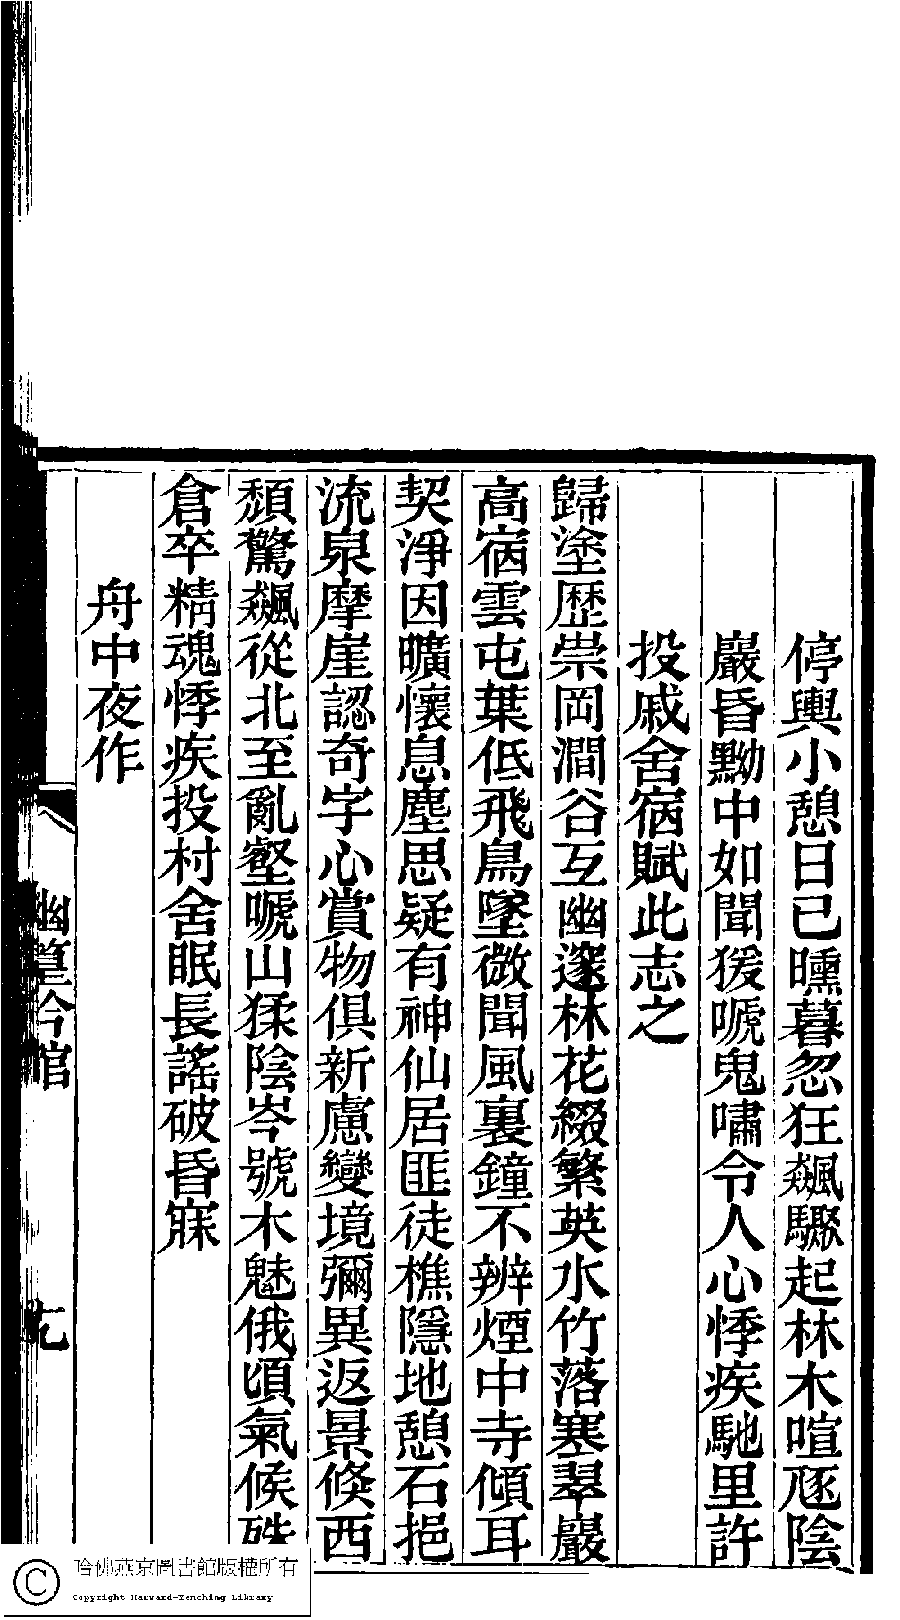 停輿小憩日已曛暮忽狂飆驟起林木喧豗陰
巖昏黝中如聞猨嗁鬼嘯令人心悸疾馳里許
投戚舍宿賦此志之
歸塗歷崇岡澗谷互幽邃林花綴繁英水竹落塞翠巖
高宿雲屯葉低飛鳥墜微聞風裏鐘不辨煙中寺傾耳
契淨因曠懷息塵思疑有神仙居匪徒樵隱地憩石挹
流泉摩崖認奇字心賞物俱新慮變境彌異返景倏西
頹驚飆從北至亂壑嗁山猱陰岑號木魅俄頃氣候殊
倉卒精魂悸疾投村舍眠長謠破昏寐
舟中夜作
幽篁吟館
哈佛燕京圖書館版權所有
Copyright Harvard-Yenching Library